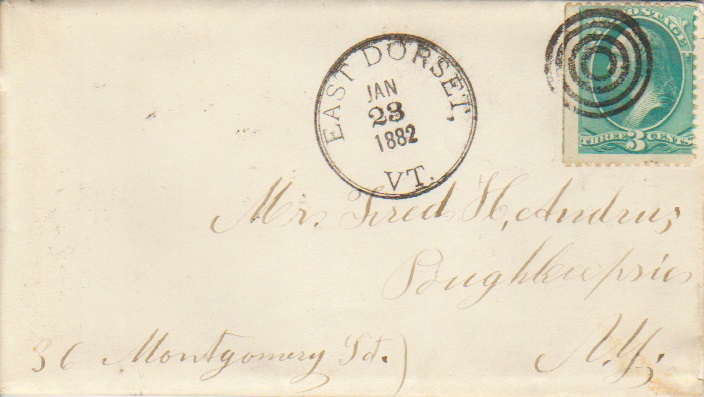 EAST DORSET,
JAN
23
1882
VT.
POSTAGE
THREE 3 CENTS
Mr. Fred H. Andrus,
Poughkeepsies
N.Y.
36 Montgomery St.)